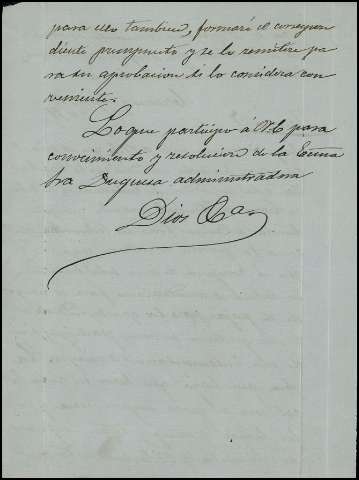 para ello tambien, formaré el correspon
diente presupuesto y se lo remitiré pa
ra su aprobacion si lo considera con
veniente.
Lo que participo a V.E. para
conocimiento y resolucion de la Exma
Sra Duquesa administradora
Dios &a